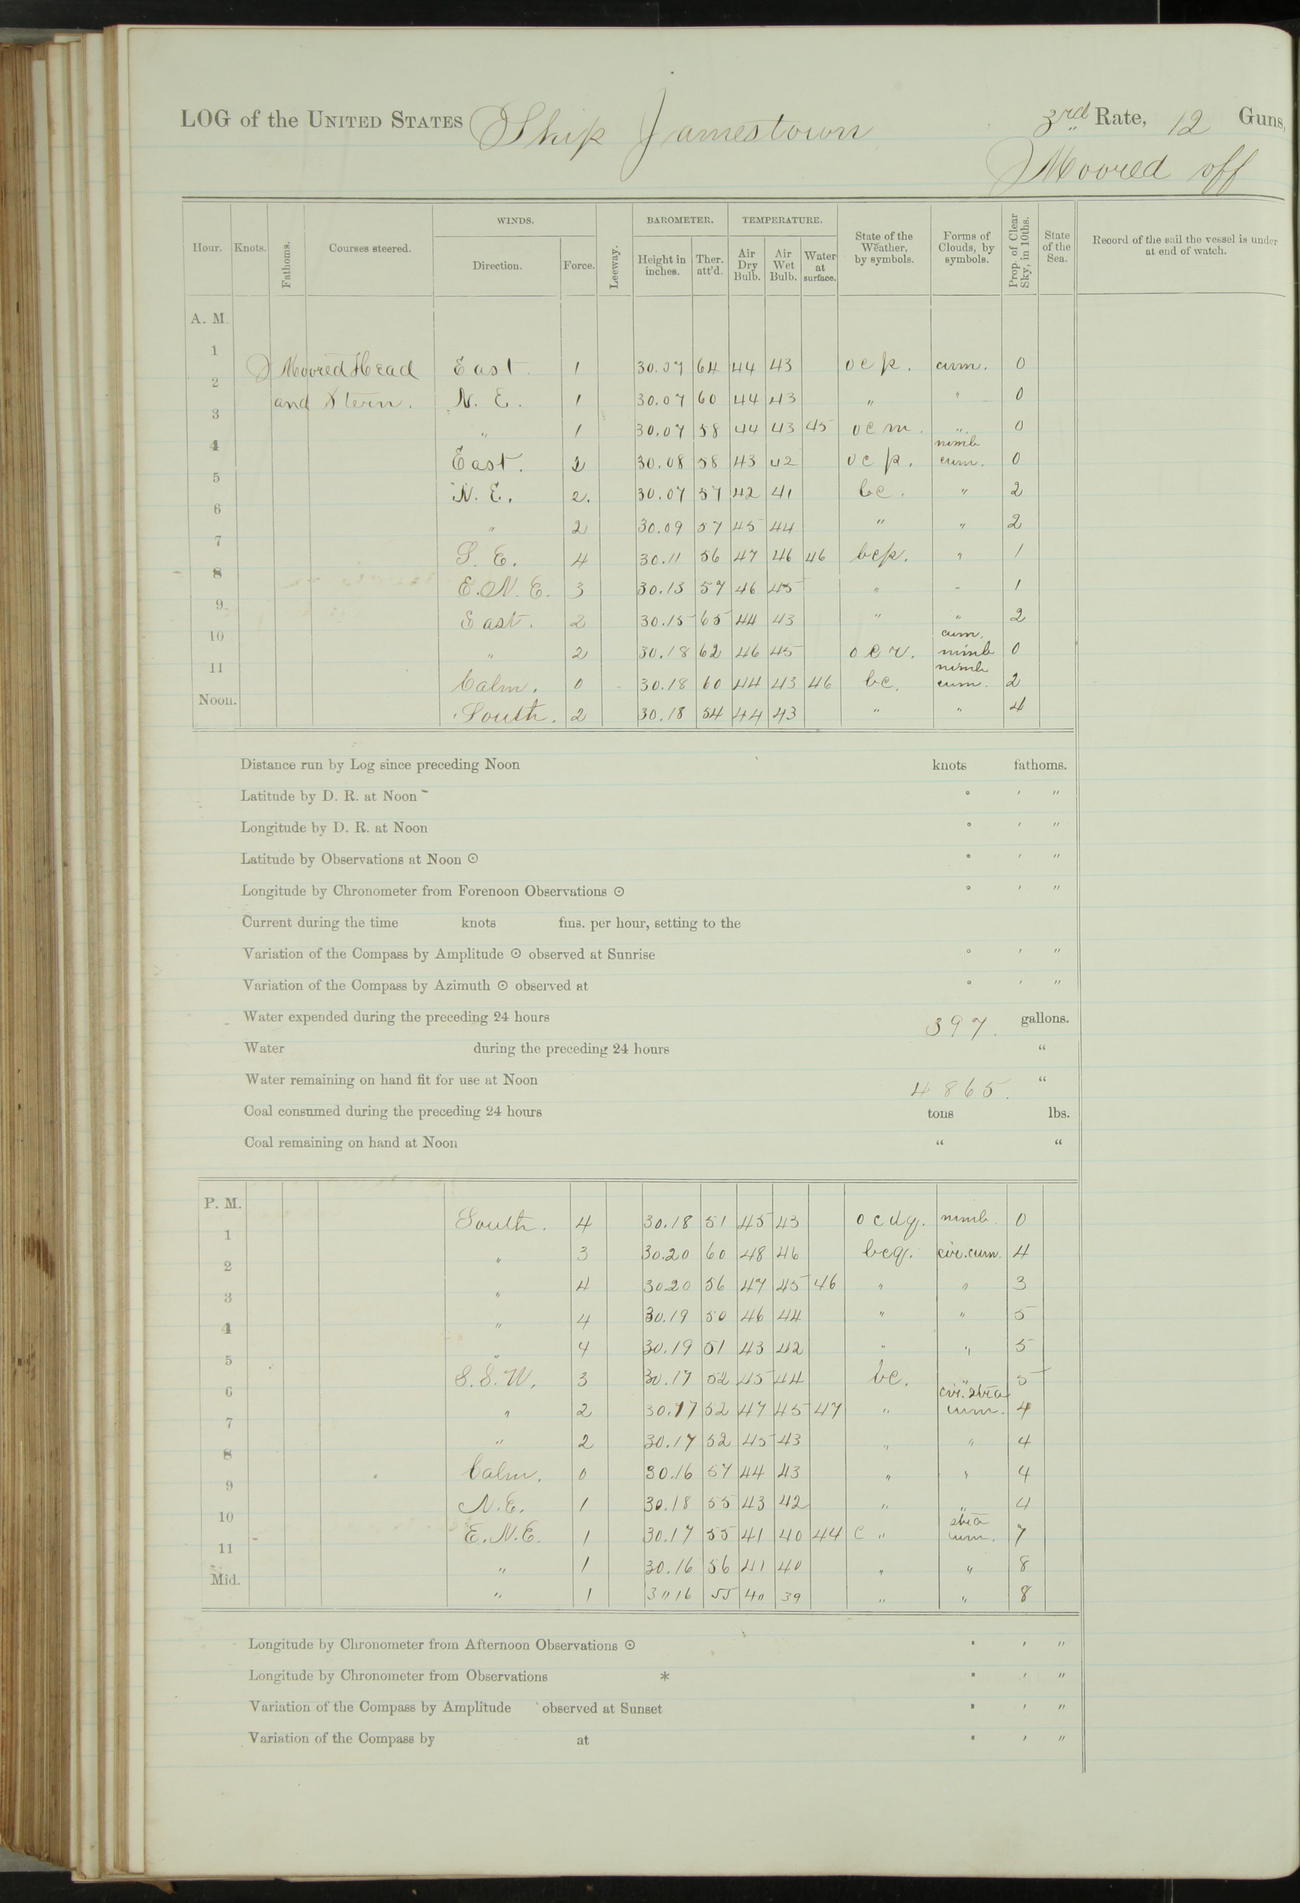 LOG of the UNITED STATES Ship Jamestown 3rd Rate, 12 Guns,
Moored off
Hour. Knots. Fathoms. Courses steered. WINDS. Direction. Force. Leeway. BAROMETER. Height in inches. Ther. att'd. TEMPERATURE. Air Dry Bulb. Air Wet Bulb. Water at surface. State of the Weather, by symbols. Forms of Clouds, by symbols. Prop. of Clear Sky, in 10ths. State of the Sea. Record of the sail the vessel is under at end of watch.
A. M.
1 Moored Head East 1 30.07 64 44 43 ocp. cum. 0
2 and Stern. N. E. 1 30.07 60 44 43 " " 0
3 " 1 30.07 58 44 43 45 ocm. " 0
4 East. 2 30.08 58 43 42 ocp. nimb cum. 0
5 N. E. 2. 30.07 57 42 41 bc. " 2
6 " 2 30.09 57 45 44 " " 2
7 S. E. 4 30.11 56 47 46 46 bcp. " 1
8 E.N.E. 3 30.13 57 46 45 " " 1
9 East. 2 30.15 65 44 43 " " 2
10 " 2 30.18 62 46 45 ocr. cum. nimb 0
11 Calm. 0 30.18 60 44 43 46 bc. nimb cum. 2
Noon. South. 2 30.18 54 44 43 " " 4
Distance run by Log since preceding Noon knots fathoms.
Latitude by D. R. at Noon ° ' "
Longitude by D. R. at Noon ° ' "
Latitude by Observations at Noon ☉ ° ' "
Longitude by Chronometer from Forenoon Observations ☉ ° ' "
Current during the time knots fms. per hour, setting to the
Variation of the Compass by Amplitude ☉ observed at Sunrise ° ' "
Variation of the Compass by Azimuth ☉ observed at ° ' "
Water expended during the preceding 24 hours 397. gallons.
Water during the preceding 24 hours "
Water remaining on hand fit for use at Noon 4865. "
Coal consumed during the preceding 24 hours tons lbs.
Coal remaining on hand at Noon " "
P. M.
South. 4 30.18 51 45 43 ocdq. nimb. 0
1 " 3 30.20 60 48 46 bcq. cir.cum. 4
2 " 4 30.20 56 47 45 46 " " 3
3 " 4 30.19 50 46 44 " " 5
4 " 4 30.19 51 43 42 " " 5
5 S.S.W. 3 30.17 52 45 44 bc. " 5
6 " 2 30.17 52 47 45 47 " cir. stra cum. 4
7 " 2 30.17 52 45 43 " " 4
8 Calm. 0 30.16 57 44 43 " " 4
9 N.E. 1 30.18 55 43 42 " " 4
10 E.N.E. 1 30.17 55 41 40 44 c " stra cum. 7
11 " 1 30.16 56 41 40 " " 8
Mid. " 1 30 16 55 40 39 " " 8
Longitude by Chronometer from Afternoon Observations ☉ ° ' "
Longitude by Chronometer from Observations * ° ' "
Variation of the Compass by Amplitude observed at Sunset ° ' "
Variation of the Compass by at ° ' "